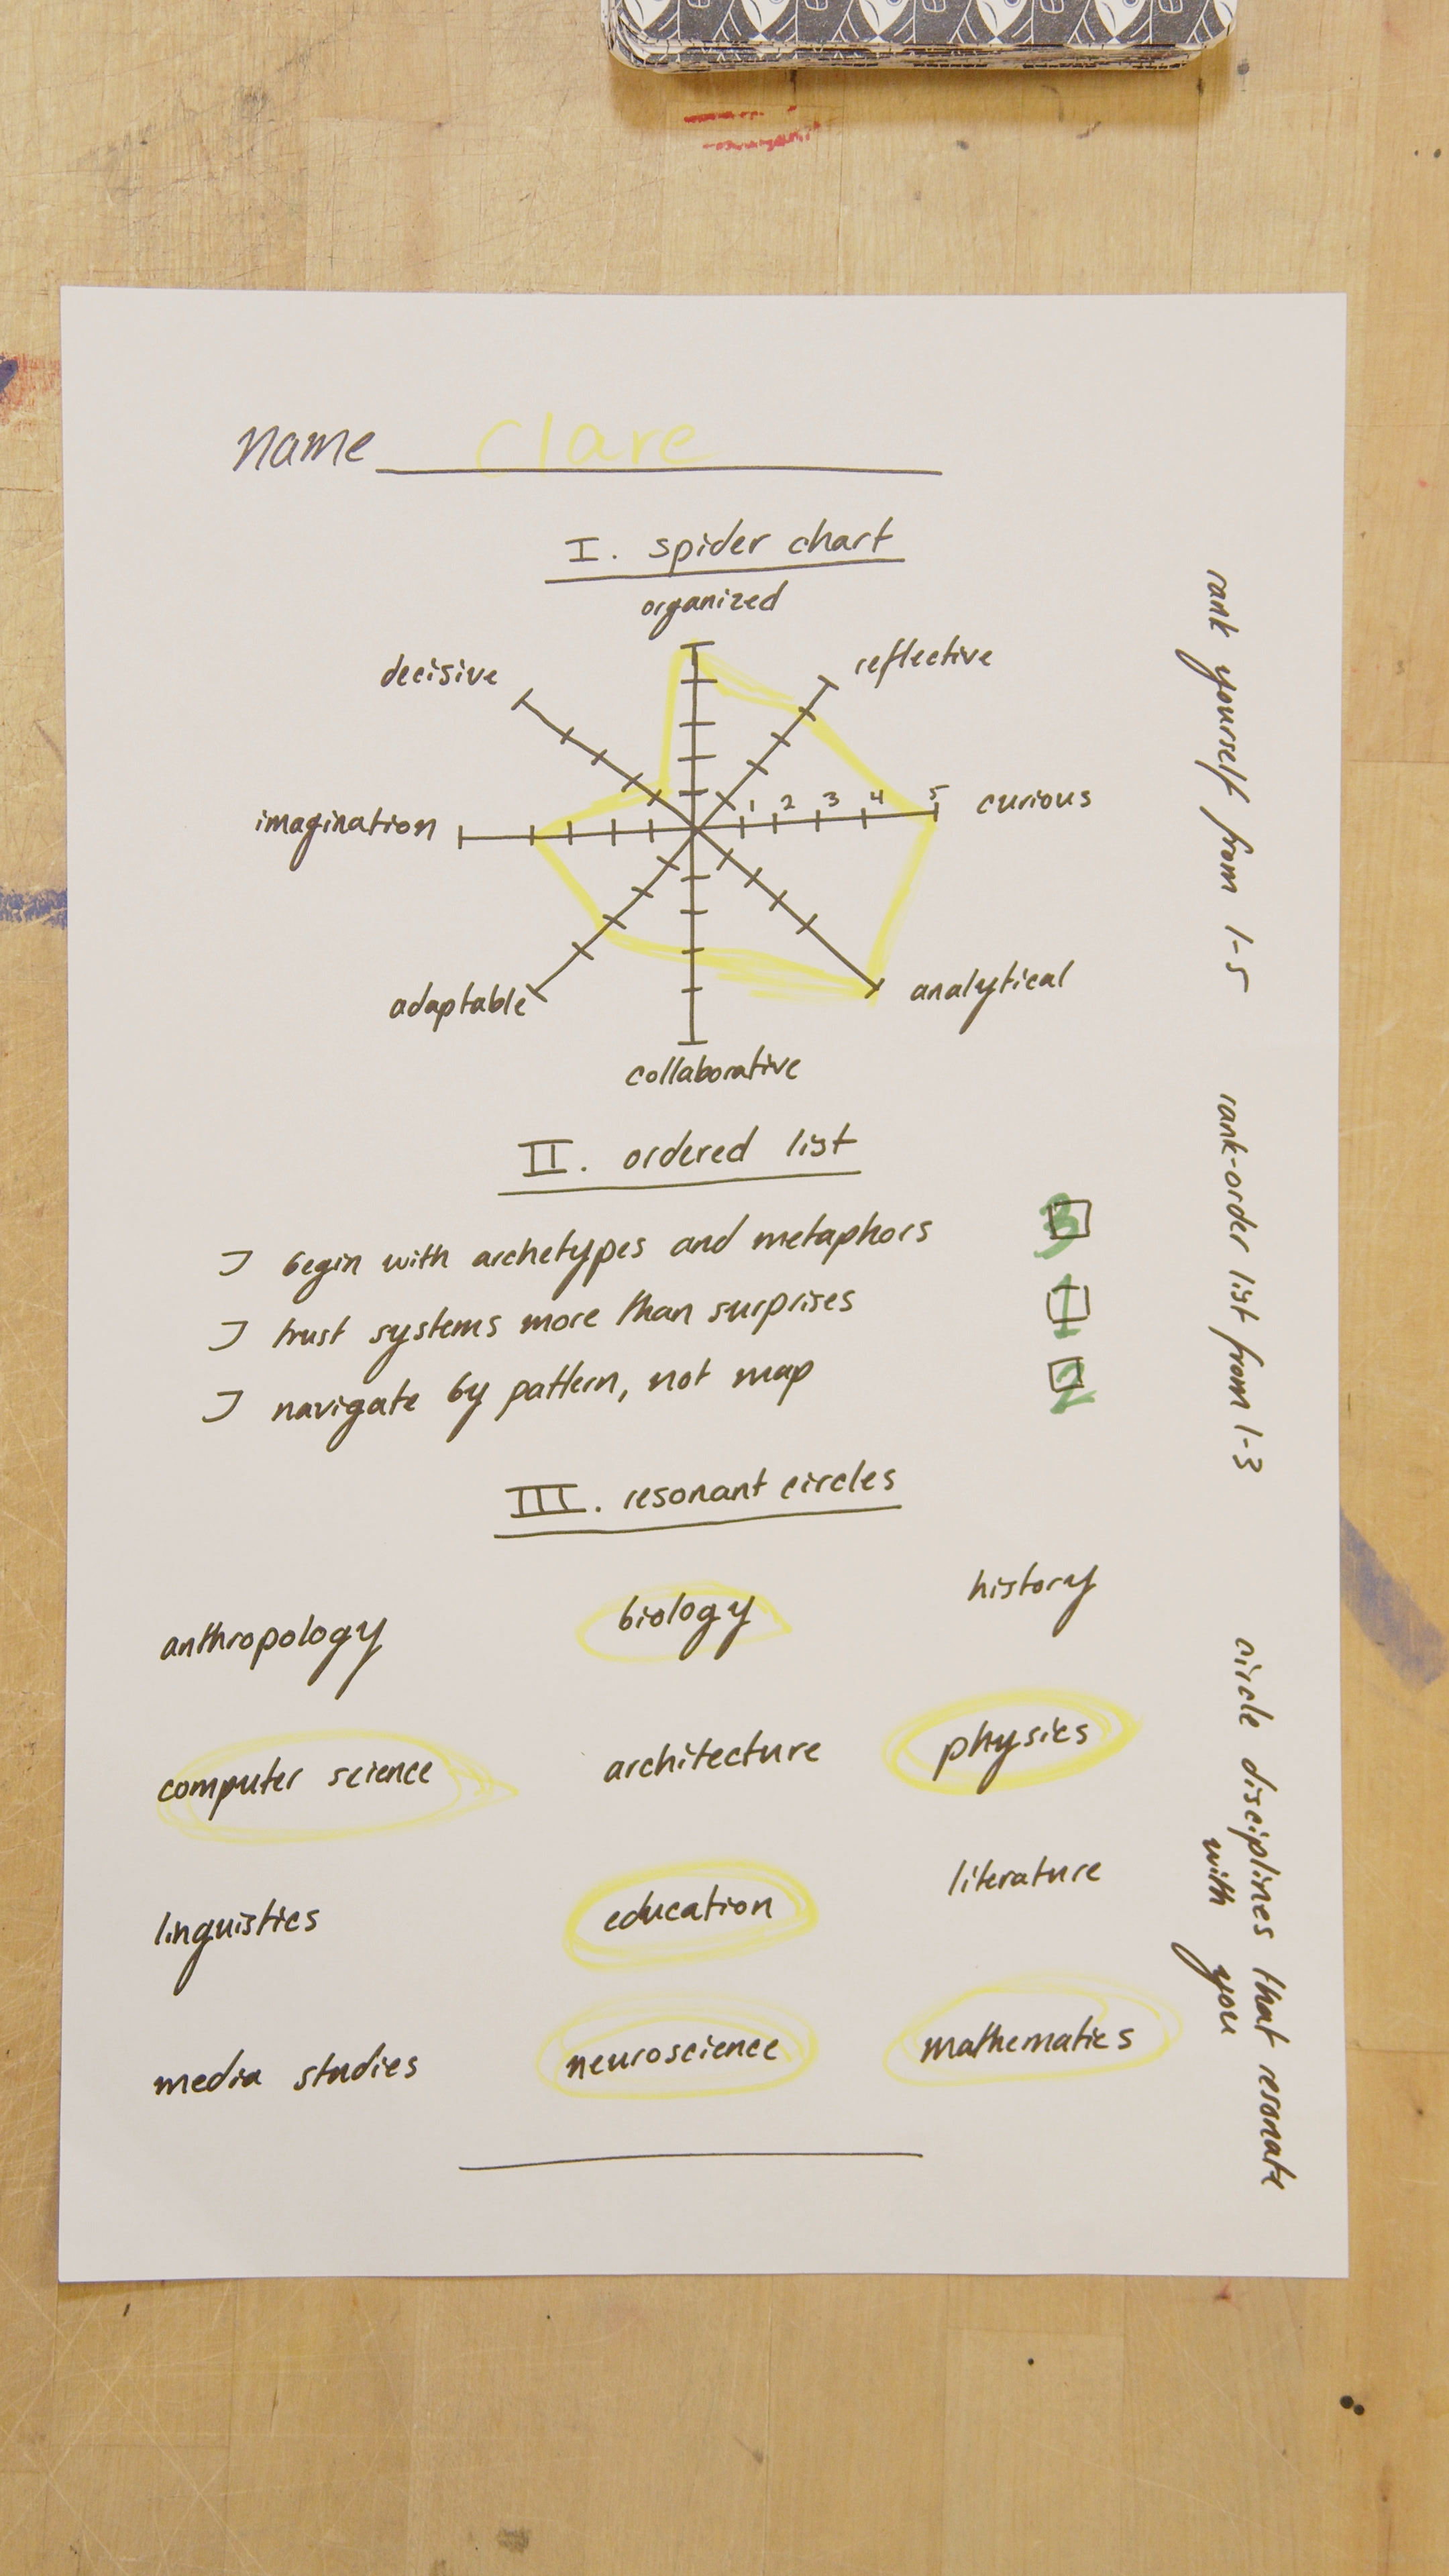 name Clare
I. spider chart
organized
decisive
reflective
imagination
1 2 3 4 5
curious
adaptable
analytical
collaborative
rank yourself from 1-5
II. ordered list
I begin with archetypes and metaphors 3
I trust systems more than surprises 1
I navigate by pattern, not map 2
rank-order list from 1-3
III. resonant circles
anthropology biology history
computer science architecture physics
linguistics education literature
media studies neuroscience mathematics
circle disciplines that resonate
with you